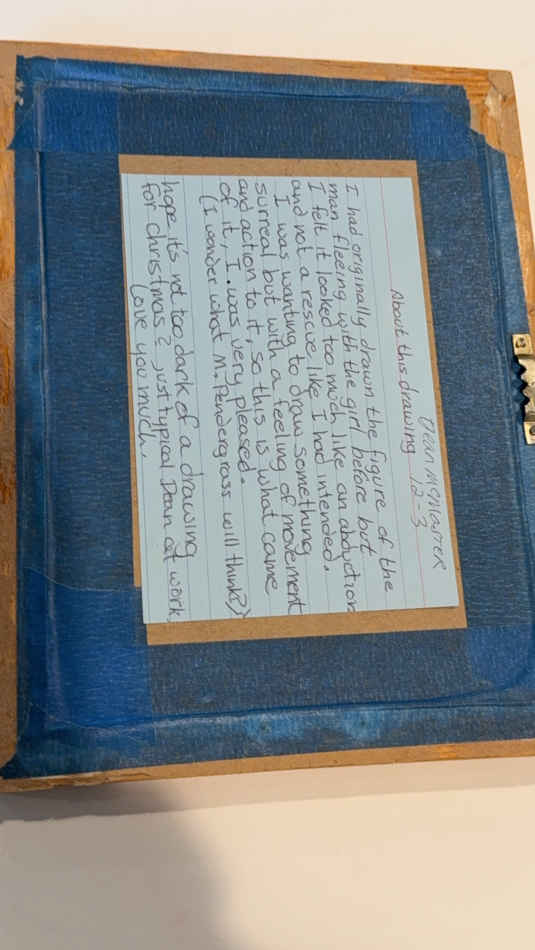 Dean McMaster
About this drawing 12-3
I had originally drawn the figure of the
man fleeing with the girl before but
I felt it looked too much like an abduction
and not a rescue like I had intended.
I was wanting to draw something
surreal but with a feeling of movement
and action to it, so this is what came
of it, I was very pleased.
(I wonder what M. Pendergrass will think?)
hope it's not too dark of a drawing
for christmas? just typical Dean at work.
Love you much.